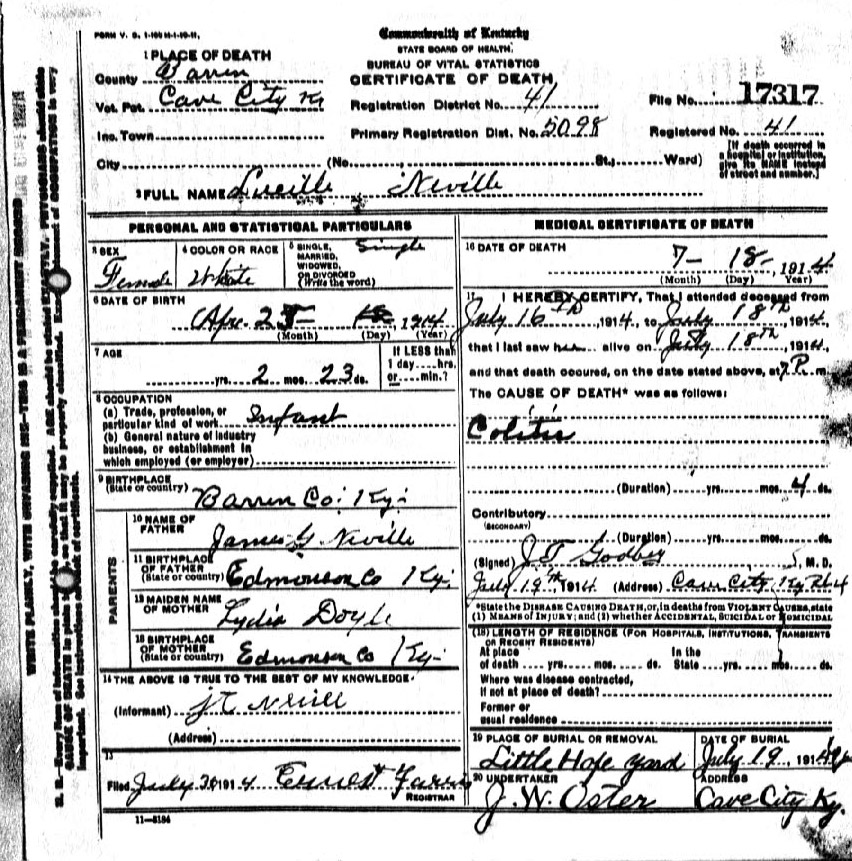 FORM V. S. 1-
Commonwealth of Kentucky
STATE BOARD OF HEALTH.
BUREAU OF VITAL STATISTICS
CERTIFICATE OF DEATH
1 PLACE OF DEATH
County Barren
Vot. Pct. Cave City Ky
Registration District No. 41
File No. 17317
Inc. Town
Primary Registration Dist. No. 5098
Registered No. 41
City (No. , St., Ward)
[If death occurred in a hospital or institution, give its NAME instead of street and number.]
2 FULL NAME Lucille Neville
PERSONAL AND STATISTICAL PARTICULARS
3 SEX Female
4 COLOR OR RACE White
5 SINGLE, MARRIED, WIDOWED, OR DIVORCED (Write the word) Single
6 DATE OF BIRTH
Apr. 25 1914
(Month) (Day) (Year)
7 AGE
yrs. 2 mos. 23 ds.
If LESS than 1 day hrs. or min.?
8 OCCUPATION
(a) Trade, profession, or particular kind of work Infant
(b) General nature of industry
business, or establishment in
which employed (or employer)
9 BIRTHPLACE
(State or country) Barren Co. Ky.
PARENTS
10 NAME OF FATHER James G Neville
11 BIRTHPLACE OF FATHER (State or country) Edmonson Co Ky.
12 MAIDEN NAME OF MOTHER Lydia Doyle
13 BIRTHPLACE OF MOTHER (State or country) Edmonson Co Ky.
14 THE ABOVE IS TRUE TO THE BEST OF MY KNOWLEDGE.
(Informant)
(Address)
15
Filed July 1914 Ernest Farris
REGISTRAR
11-5184
MEDICAL CERTIFICATE OF DEATH
16 DATE OF DEATH
7- 18- , 1914
(Month) (Day) Year)
17 I HEREBY CERTIFY, That I attended deceased from
July 16th , 1914, to July 18th , 1914,
that I last saw her alive on July 18th , 1914,
and that death occured, on the date stated above, at P. m.
The CAUSE OF DEATH* was as follows:
Colitis
(Duration) yrs. mos. 4 ds.
Contributory
(SECONDARY)
(Duration) yrs. mos. ds.
(Signed) J T Godbey , M. D.
July 19th, 1914 (Address) Cave City Ky
*State the DISEASE CAUSING DEATH, or, in deaths from VIOLENT CAUSES, state
(1) MEANS OF INJURY; and (2) whether ACCIDENTAL, SUICIDAL or HOMICIDAL
(18) LENGTH OF RESIDENCE (FOR HOSPITALS, INSTITUTIONS, TRANSIENTS
OR RECENT RESIDENTS)
At place of death yrs. mos. ds. In the State yrs. mos. ds.
Where was disease contracted,
If not at place of death?
Former or
usual residence
19 PLACE OF BURIAL OR REMOVAL
Little Hope yard
DATE OF BURIAL
July 19 , 1914
20 UNDERTAKER
J. W. Oster
ADDRESS
Cave City Ky.